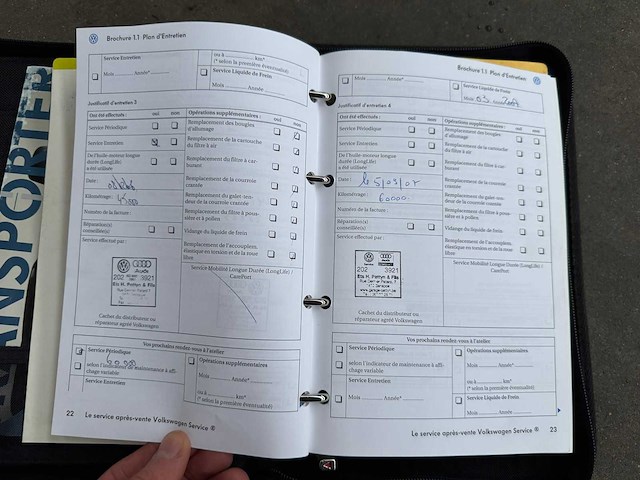 TRANSPORTER
Brochure 1.1 Plan d'Entretien
Service Entretien
Mois ............ Année* ............
ou à ............ km*
(* selon la première éventualité)
Service Liquide de Frein
Mois ............ Année ............
Justificatif d'entretien 3
Ont été effectués : oui non
Service Périodique
Service Entretien
De l'huile-moteur longue
durée (LongLife)
a été utilisée
Date :
Kilométrage :
Numéro de la facture :
Réparation(s)
conseillée(s)
Service effectué par :
Opérations supplémentaires : oui non
Remplacement des bougies
d'allumage
Remplacement de la cartouche
du filtre à air
Remplacement du filtre à car-
burant
Remplacement de la courroie
crantée
Remplacement du galet-ten-
deur de la courroie crantée
Remplacement du filtre à pous-
sière et à pollen
Vidange du liquide de frein
Remplacement de l'accouplem.
élastique en torsion et de la roue
libre
Service Mobilité Longue Durée (LongLife) /
CarePort
Audi
202 3921
Ets H. Pettyn & Fils
Cachet du distributeur ou
réparateur agréé Volkswagen
Vos prochains rendez-vous à l'atelier
Service Périodique
selon l'indicateur de maintenance à affi-
chage variable
Service Entretien
Opérations supplémentaires
Mois ............ Année* ............
ou à ............ km*
(* selon la première éventualité)
Service Liquide de Frein
Mois ............ Année ............
22 Le service après-vente Volkswagen Service ®
Brochure 1.1 Plan d'Entretien
Mois ............ Année* ............
Service Liquide de Frein
Mois 03 Année 2007
Justificatif d'entretien 4
Ont été effectués : oui non
Service Périodique
Service Entretien
De l'huile-moteur longue
durée (LongLife)
a été utilisée
Date : le 5/03/07
Kilométrage : 60000
Numéro de la facture :
Réparation(s)
conseillée(s)
Service effectué par :
Opérations supplémentaires : oui non
Remplacement des bougies
d'allumage
Remplacement de la cartouche
du filtre à air
Remplacement du filtre à car-
burant
Remplacement de la courroie
crantée
Remplacement du galet-ten-
deur de la courroie crantée
Remplacement du filtre à pous-
sière et à pollen
Vidange du liquide de frein
Remplacement de l'accouplem.
élastique en torsion et de la roue
libre
Service Mobilité Longue Durée (LongLife) /
CarePort
202 3921
Ets H. Pettyn & Fils
Cachet du distributeur ou
réparateur agréé Volkswagen
Vos prochains rendez-vous à l'atelier
Service Périodique
selon l'indicateur de maintenance à affi-
chage variable
Service Entretien
Mois ............ Année* ............
Opérations supplémentaires
Mois ............ Année* ............
ou à ............ km*
(* selon la première éventualité)
Service Liquide de Frein
Mois ............ Année ............
Le service après-vente Volkswagen Service ® 23